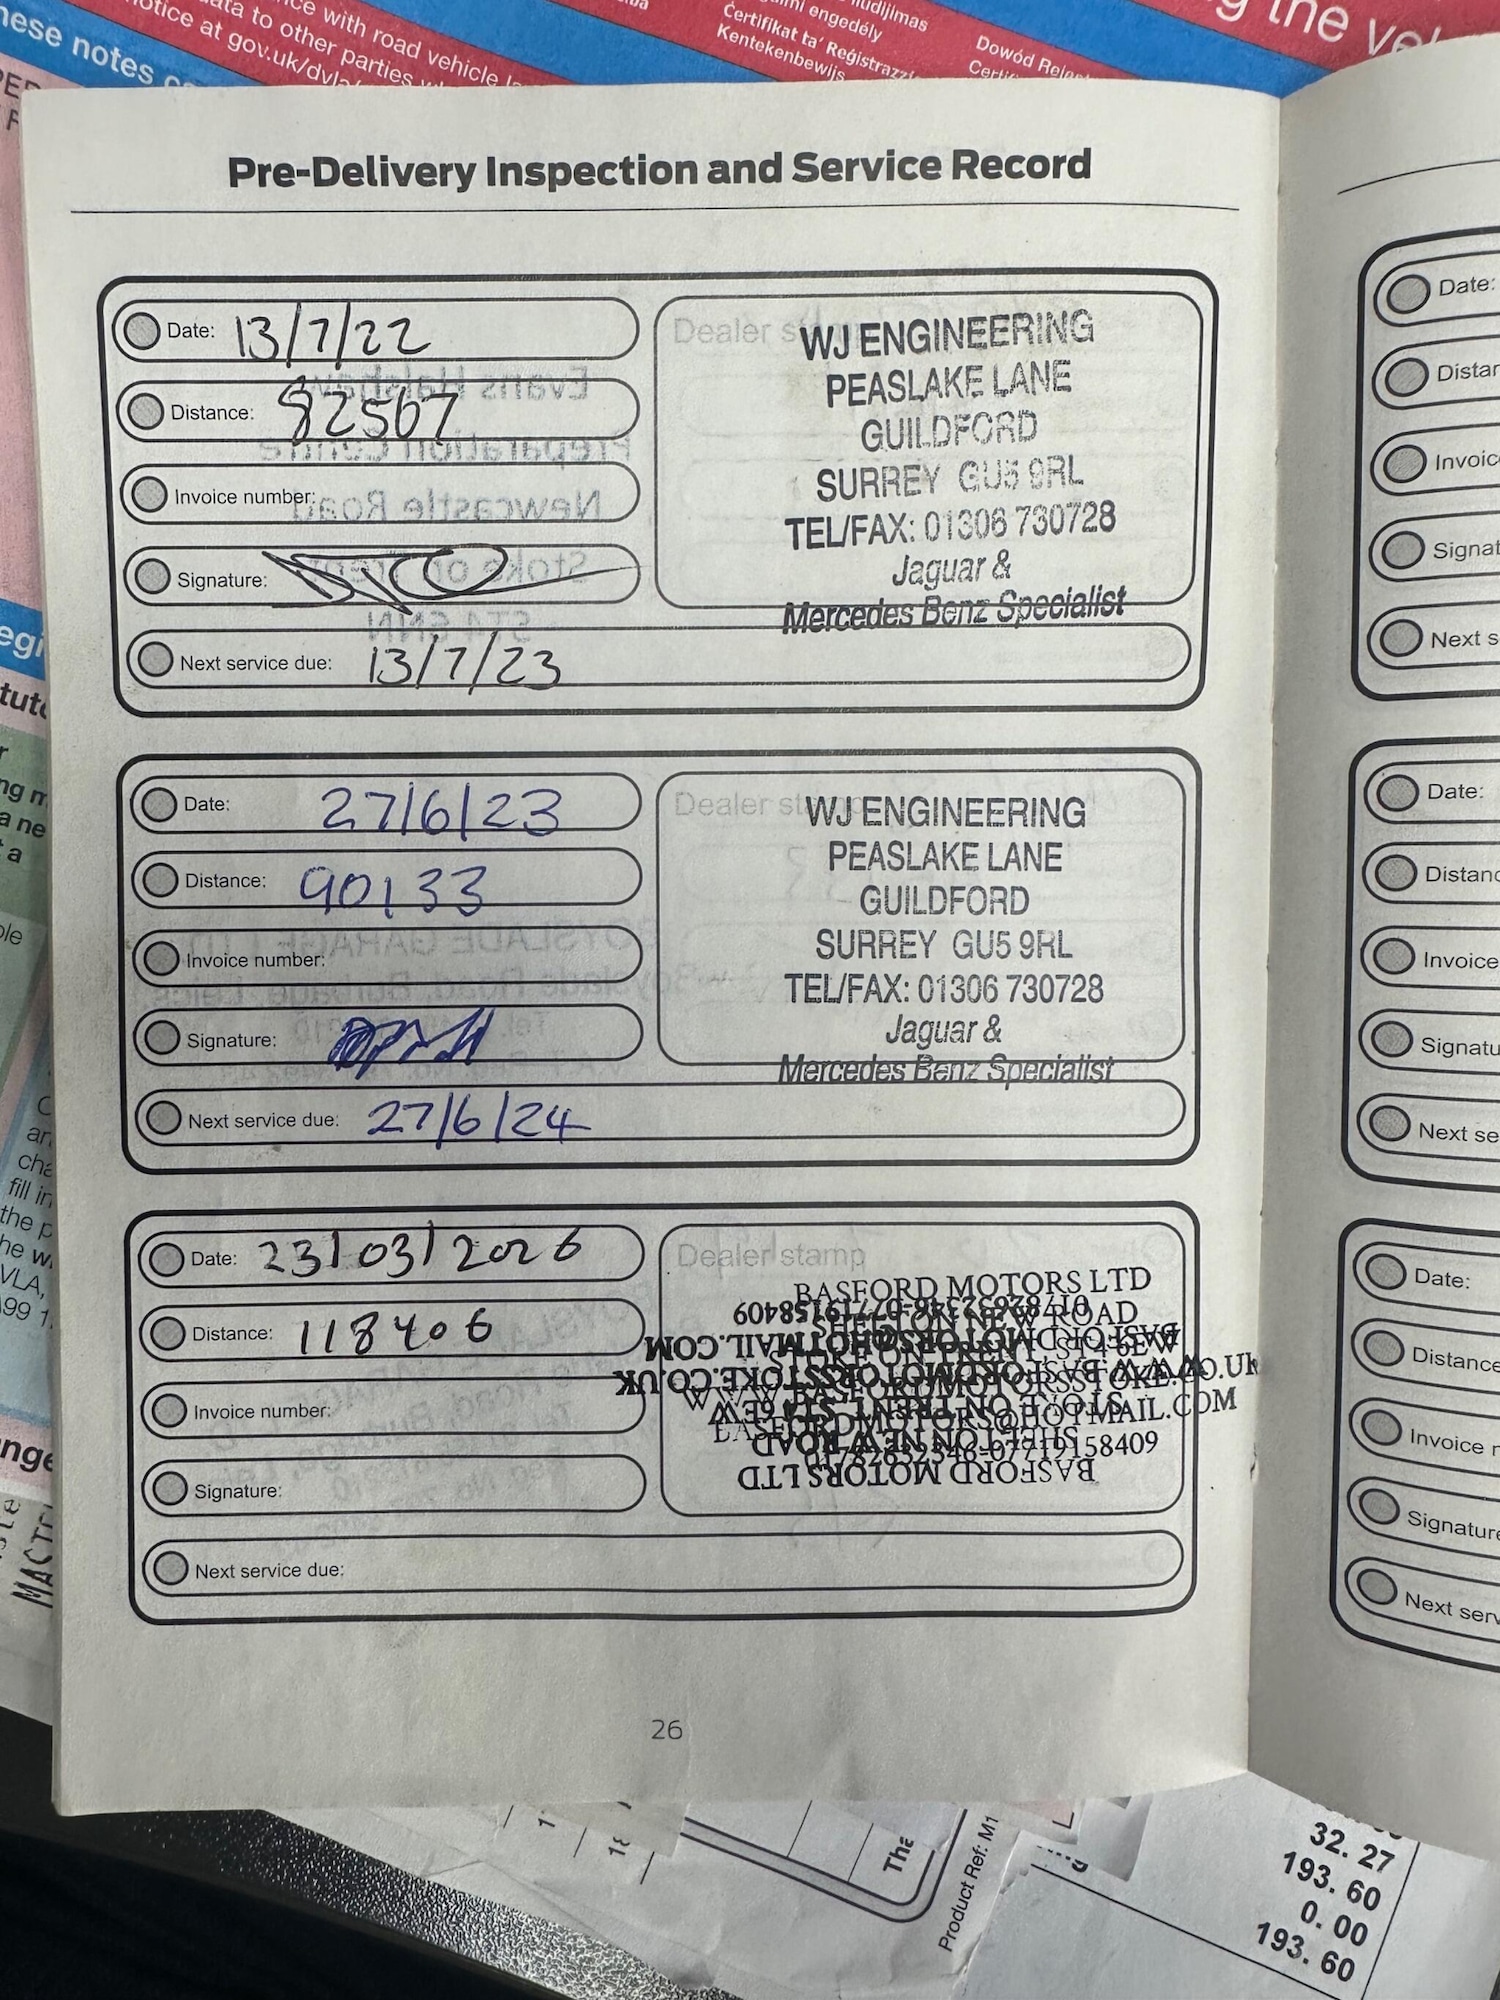 hese notes
ce with road vehicle
ata to other parties
notice at gov.uk/dvla/
engedély
Ċertifikat ta' Reġistrazzj
Kentekenbewijs
Dowód Rejest
g the ve
Pre-Delivery Inspection and Service Record
Date: 13/7/22
Distance: 82567
Invoice number:
Signature:
Next service due: 13/7/23
Dealer stamp
WJ ENGINEERING
PEASLAKE LANE
GUILDFORD
SURREY GU5 9RL
TEL/FAX: 01306 730728
Jaguar &
Mercedes Benz Specialist
Date: 27/6/23
Distance: 90133
Invoice number:
Signature:
Next service due: 27/6/24
Dealer stamp
WJ ENGINEERING
PEASLAKE LANE
GUILDFORD
SURREY GU5 9RL
TEL/FAX: 01306 730728
Jaguar &
Mercedes Benz Specialist
Date: 23/03/2026
Distance: 118406
Invoice number:
Signature:
Next service due:
Dealer stamp
BASFORD MOTORS LTD
SHELTON NEW ROAD
STOKE ON TRENT ST4 6EW
WWW.BASFORDMOTORSSTOKE.CO.UK
BASFORDMOTORS@HOTMAIL.COM
01782632346-07719158409
26
Date:
Distan
Invoic
Signat
Next s
Date:
Distanc
Invoice
Signatu
Next se
Date:
Distance
Invoice n
Signature
Next serv
Product Ref: M1
Tha
32.27
193.60
0.00
193.60